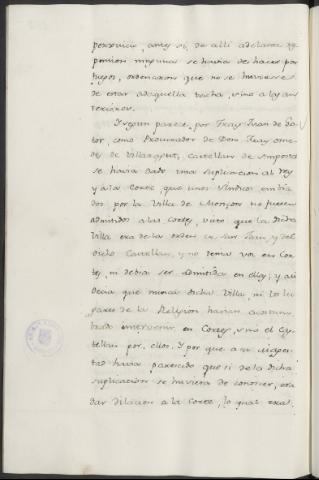 perjuicio, antes si, de alli adelante ex
pension ninguna se havia de hacer por
hijos, ordenaron que no se huviesse
de estar adaquella fecha, sino a las an
teriores.
Y segun parece, por Fray Juan de Pa
tor, como Procurador de Don Fray
de Villaragut, Castellan de Amposta
se havia dado una suplicacion al Rey
y a la Corte, que unos Sindicos embia
dos por la Villa de Monçon no fuesen
admitidos a las Cortes, visto que la dicha
Villa era de la orden de San Juan, y del
dicho Castellan, y no tenia voz en Cor
tes ni debia ser admitida en ellas; y assi
decia que nunca dicha Villa, ni Lu
gares de la Religion havian acostum
brado intervenir en Cortes, sino el Cas
tellan por ellos. Y por que a su Mages
tad havia parecido que si de la dicha
suplicacion se huviera de conocer, era
dar dilacion a la Corte, lo qual era